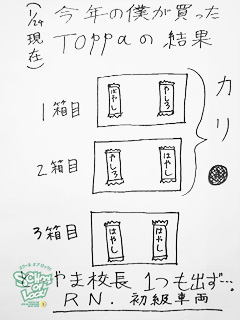 (1/24現在)
今年の僕が買った
TOPPaの結果
1箱目
はやし
やしろ
2箱目
やしろ
はやし
カリ
3箱目
はやし
はやし
SCHOOL OF LOCK!
やま校長 1つも出ず…。
RN. 初級車両